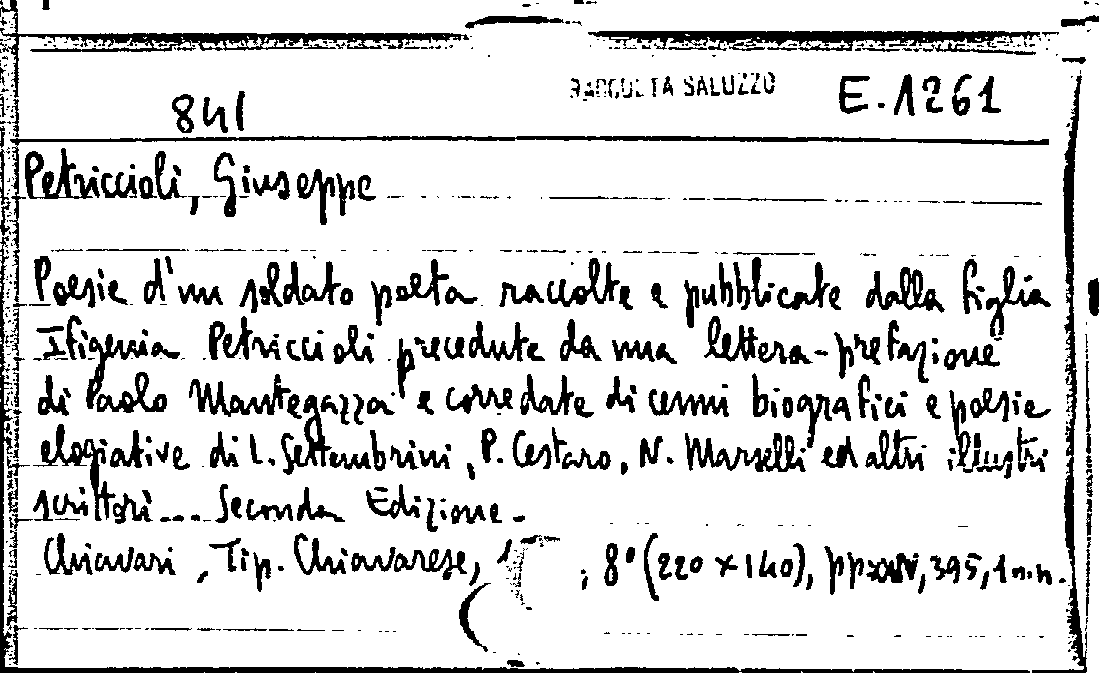 RACCOLTA SALUZZO
E.1261
841
Petriccioli, Giuseppe
Poesie d'un soldato poeta raccolte e pubblicate dalla figlia
Ifigenia Petriccioli precedute da una lettera-prefazione
di Paolo Mantegazza e corredate di cenni biografici e poesie
elogiative di L. Settembrini, P. Cestaro, N. Marselli ed altri illustri
scrittori... Seconda Edizione.
Chiavari, Tip. Chiavarese, ; 8° (220 x 140), pp. 395, 1 n.n.